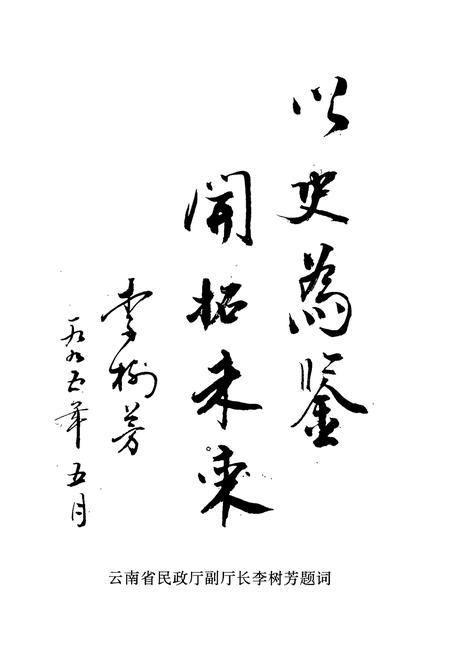 以史為鉴
開拓未来
李樹芳
一九九五年五月
云南省民政厅副厅长李树芳题词